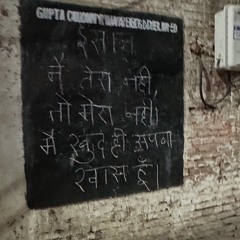 GUPTA COLONY
इंसान
मैं तेरा नहीं,
तो मेरा नहीं।
मैं खुद ही अपना
खास हूँ।